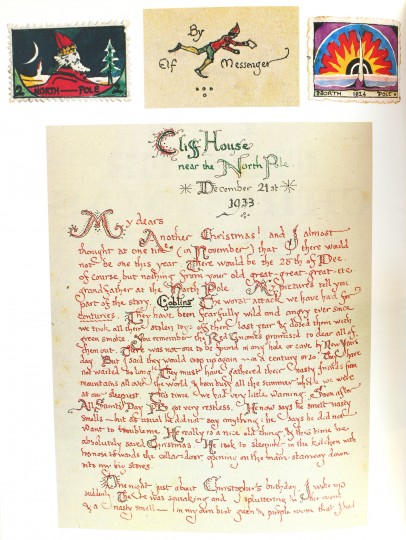 2 NORTH — POLE 2
By
Elf Messenger
NORTH 1924 POLE
Cliff House
near the North Pole
December 21st
1933
My dears
Another Christmas! and I almost
thought at one time (in November) that there would
not be one this year. There would be the 25th of Dec.
of course, but nothing from your old great-great-great-etc.
grandfather at the North Pole. My pictures tell you
part of the story. Goblins. The worst attack we have had for
centuries. They have been fearfully wild and angry ever since
we took all their stolen toys off them last year & dosed them with
green smoke. You remember the Red Gnomes promised to clear all of
them out. There was not one to be found in any hole or cave by New Years
day. But I said they would crop up again — in a century or so. They have
not waited so long! They must have gathered their nasty friends from
mountains all over the world, & been busy all the summer while we were
at our sleepiest. This time we had very little warning. Soon after
All Saints' Day PB got very restless. He now says he smelt nasty
smells — but as usual he did not say anything: he says he did not
want to trouble me. He really is a nice old thing, & this time he
absolutely saved Christmas. He took to sleeping in the kitchen with
his nose towards the cellar-door, opening on the main-stairway down
into my big stores.
One night just about Christopher's birthday, I woke up
suddenly. There was squeaking and spluttering in the room
& a nasty smell — in my own best green & purple room that I had